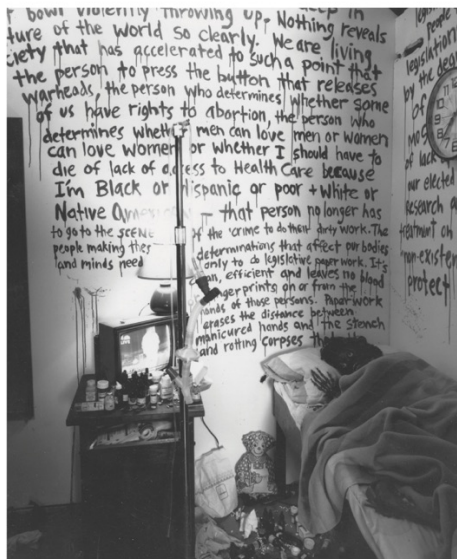 bowl violently throwing up. Nothing reveals
ture of the world so clearly. We are living
ciety that has accelerated to such a point that
the person to press the button that releases
warheads, the person who determines whether some
of us have rights to abortion, the person who
determines whether men can love men or women
can love women or whether I should have to
die of lack of access to Health Care because
I'm Black or Hispanic or poor + white or
Native American — that person no longer has
to go to the SCENE of the 'crime to do their dirty work. The
people making these determinations that affect our bodies
and minds need only to do legislative paper work. It's
efficient and leaves no blood
fingerprints on or from the
hands of those persons. Paperwork
erases the distance between
manicured hands and the stench
and rotting corpses that
people
legislation
by the
of
of lack
our elected
Research
treatment on
non-existen
protect